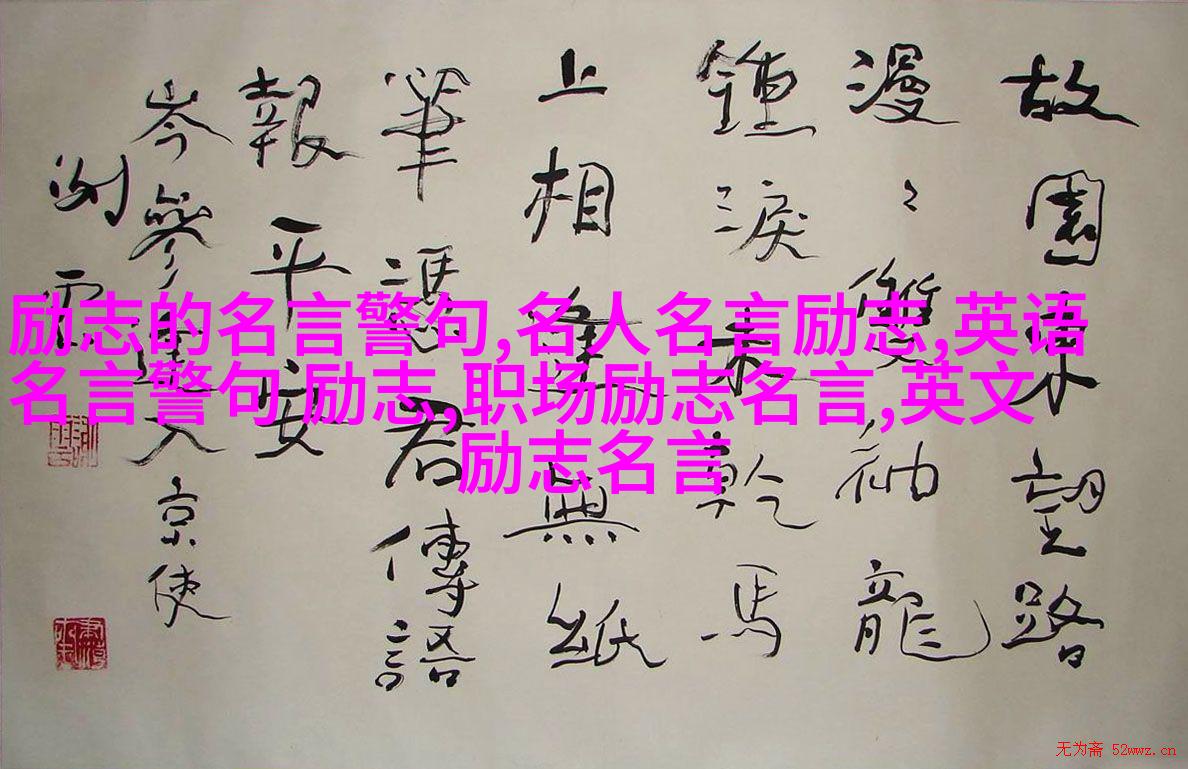 故園東望路
漫〻雙袖龍
鍾淚未乾馬
上相逢無紙
筆憑君傳語
報平安
岑參逢入京使
励志的名言警句,名人名言励志,英语
名言警句 励志,职场励志名言,英文
励志名言
无为斋 52wwz.cn